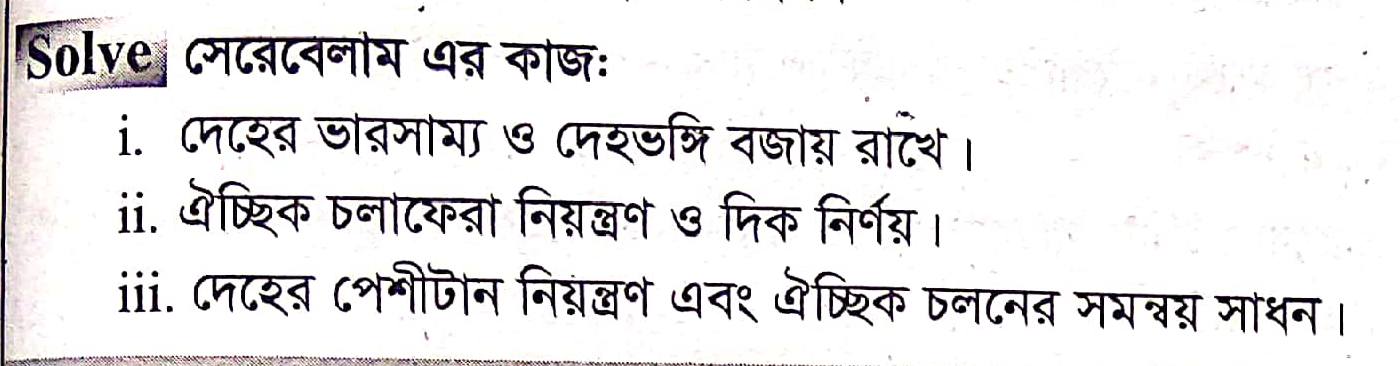 Solve সেরেবেলাম এর কাজঃ
i. দেহের ভারসাম্য ও দেহভঙ্গি বজায় রাখে।
ii. ঐচ্ছিক চলাফেরা নিয়ন্ত্রণ ও দিক নির্ণয়।
iii. দেহের পেশীটান নিয়ন্ত্রণ এবং ঐচ্ছিক চলনের সমন্বয় সাধন।